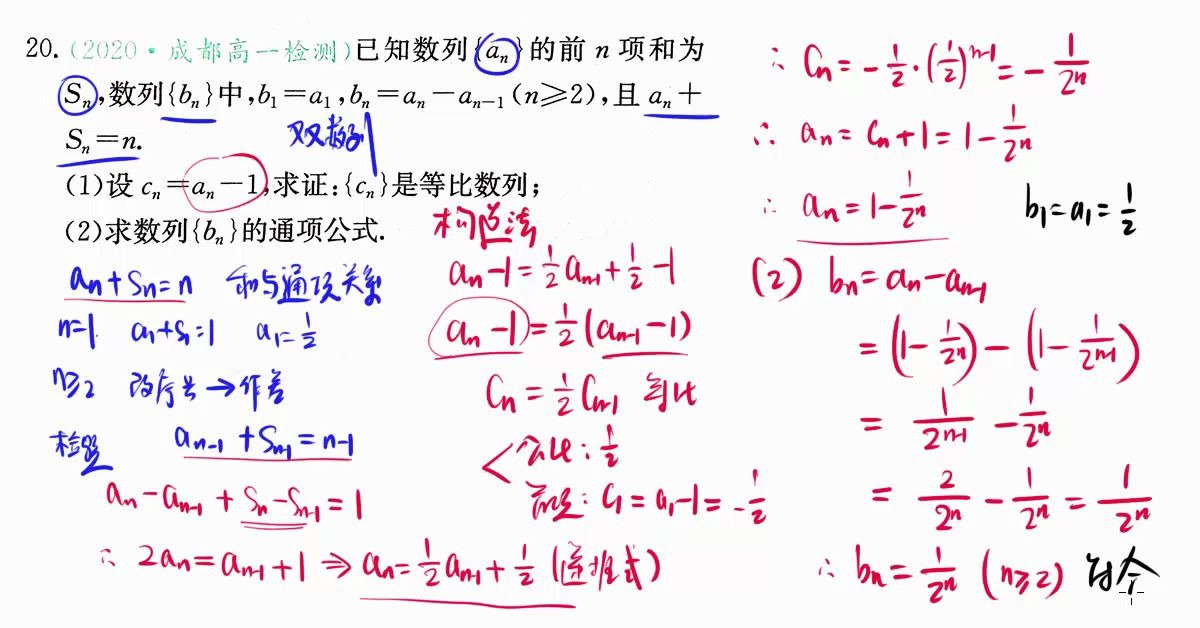 20. (2020·成都高一检测)已知数列{aₙ}的前 n 项和为
Sₙ,数列{bₙ}中,b₁=a₁,bₙ=aₙ-aₙ₋₁(n≥2),且 aₙ+
Sₙ=n.
双数列
(1)设 cₙ=aₙ-1,求证:{cₙ}是等比数列;
(2)求数列{bₙ}的通项公式.
aₙ+Sₙ=n 和与通项关系
n=1 a₁+S₁=1 a₁=1/2
n≥2 改序号→作差
检验 aₙ₋₁+Sₙ₋₁=n-1
aₙ-aₙ₋₁+Sₙ-Sₙ₋₁=1
∴ 2aₙ=aₙ₋₁+1 ⇒ aₙ=1/2aₙ₋₁+1/2 (递推式)
构造法
aₙ-1=1/2aₙ₋₁+1/2-1
aₙ-1=1/2(aₙ₋₁-1)
Cₙ=1/2Cₙ₋₁ 等比
公比:1/2
首项:C₁=a₁-1=-1/2
∴ Cₙ=-1/2·(1/2)ⁿ⁻¹=-1/2ⁿ
∴ aₙ=Cₙ+1=1-1/2ⁿ
∴ aₙ=1-1/2ⁿ
b₁=a₁=1/2
(2) bₙ=aₙ-aₙ₋₁
=(1-1/2ⁿ)-(1-1/2ⁿ⁻¹)
=1/2ⁿ⁻¹-1/2ⁿ
=2/2ⁿ-1/2ⁿ=1/2ⁿ
∴ bₙ=1/2ⁿ (n≥2)